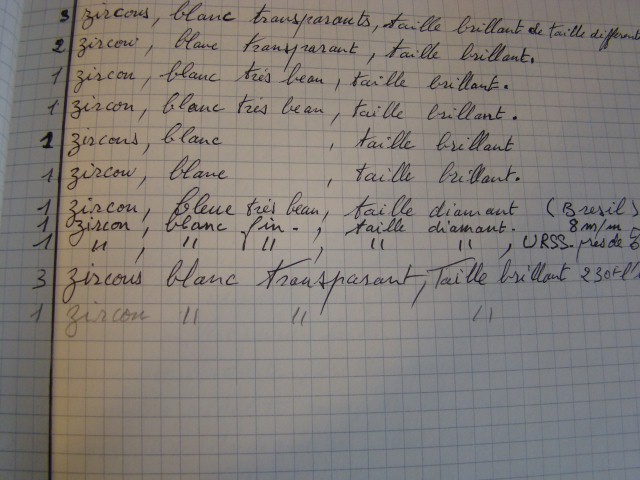 3 zircons, blanc transparants, taille brillant de taille different
2 zircon, blanc transparant, taille brillant.
1 zircon, blanc très beau, taille brillant.
1 zircon, blanc tres beau, taille brillant.
1 zircons, blanc , taille brillant
1 zircon, blanc , taille brillant.
1 zircon, bleue très beau, taille diamant (Bresil)
1 zircon, blanc fin. , taille diamant. 8 m/m
1 " , " " , " " , URSS. près de
3 zircons blanc transparant, Taille brillant
1 zircon " " "